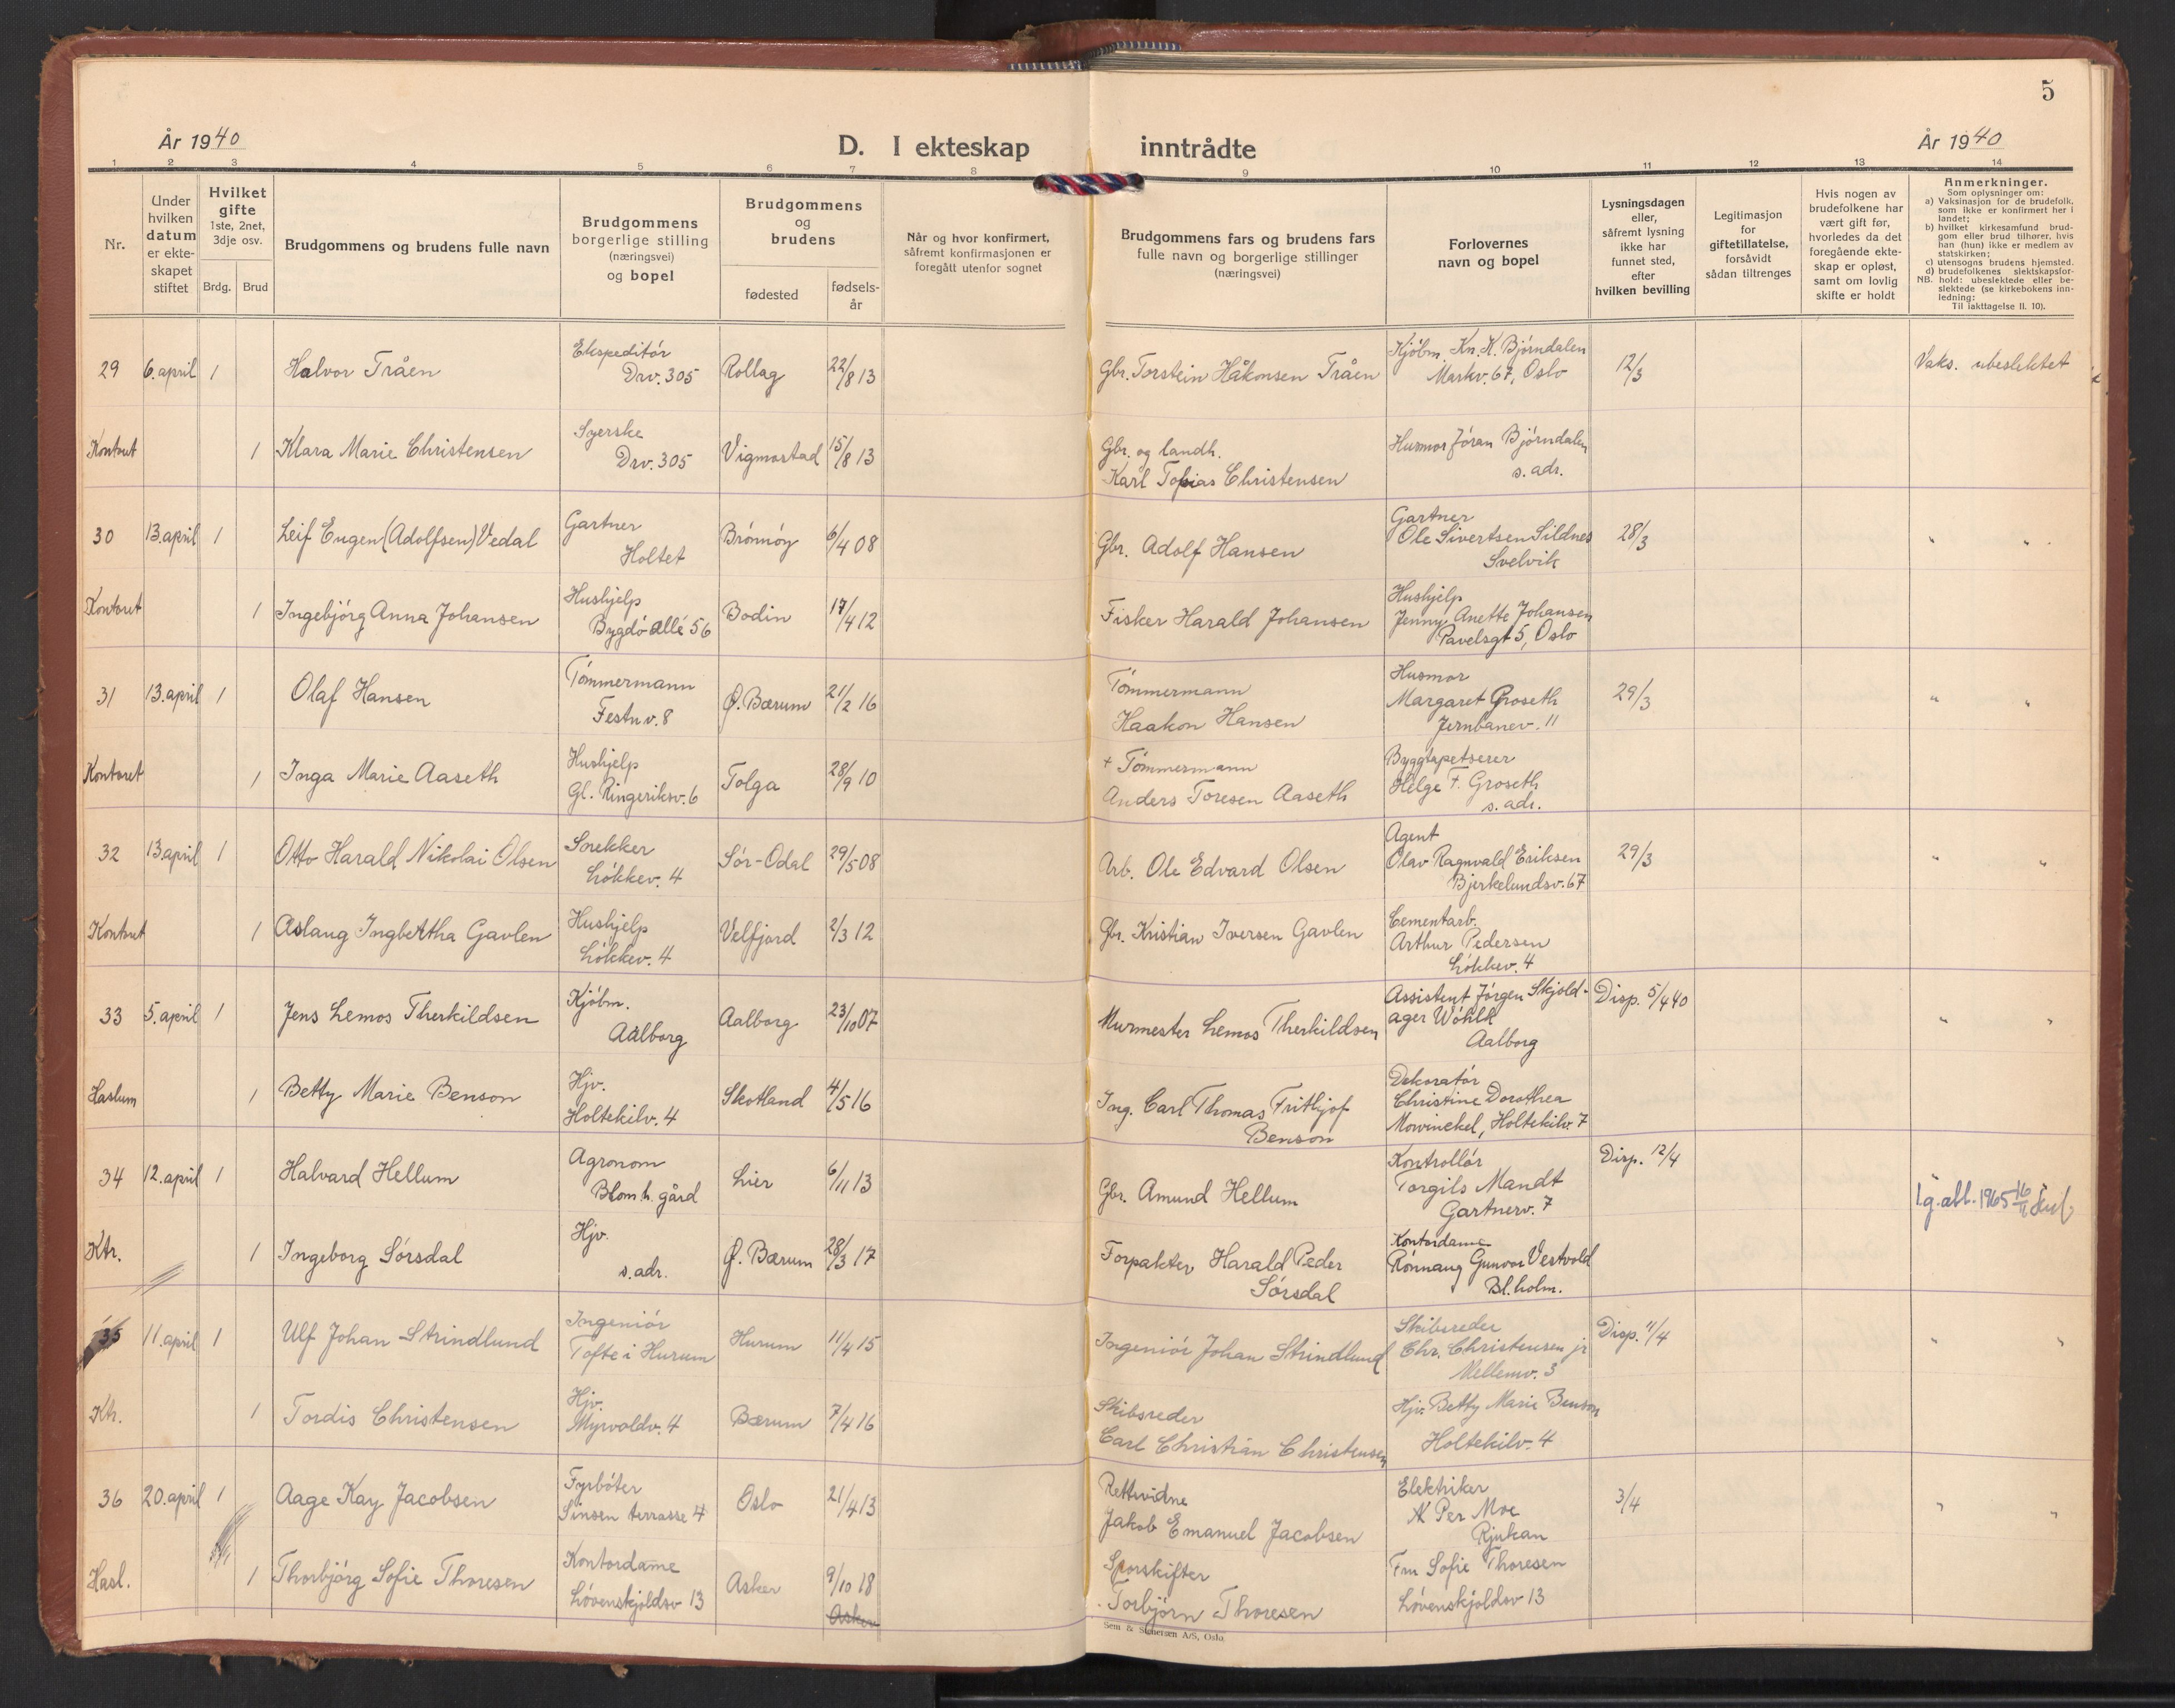 5
År 1940
D. I ekteskap inntrådte
År 1940
1 2 3 4 5 6 7 8 9 10 11 12 13 14
Nr.
Under hvilken datum er ekteskapet stiftet
Hvilket gifte 1ste, 2net, 3dje osv.
Brdg. Brud
Brudgommens og brudens fulle navn
Brudgommens borgerlige stilling (næringsvei) og bopel
Brudgommens og brudens
fødested
fødselsår
Når og hvor konfirmert, såfremt konfirmasjonen er foregått utenfor sognet
Brudgommens fars og brudens fars fulle navn og borgerlige stillinger (næringsvei)
Forlovernes navn og bopel
Lysningsdagen eller, såfremt lysning ikke har funnet sted, efter hvilken bevilling
Legitimasjon for giftetillatelse, forsåvidt sådan tiltrenges
Hvis nogen av brudefolkene har vært gift før, hvorledes da det foregående ekteskap er opløst, samt om lovlig skifte er holdt
Anmerkninger.
Som oplysninger om:
a) Vaksinasjon for de brudefolk, som ikke er konfirmert her i landet;
b) hvilket kirkesamfund brudgom eller brud tilhører, hvis han (hun) ikke er medlem av statskirken;
c) utensogns brudens hjemsted.
d) brudefolkenes slektskapsforhold: ubeslektede eller beslektede (se kirkebokens innledning:
NB. Til iakttagelse II. 10).
29 6. april 1 Halvor Tråen Ekspeditör Drv. 305 Rollag 22/8 13 Gbr. Torstein Håkonsen Tråen Kjöbm. Kn. K. Björndalen Markv. 67, Oslo 12/3 Vaks. ubeslektet
Kontoret 1 Klara Marie Christensen Syerske Drv. 305 Vigmostad 15/8 13 Gbr. og landh. Karl Tobias Christensen Husmor Jöran Björndalen s. adr.
30 13. april 1 Leif Eugen (Adolfsen) Vedal Gartner Holtet Brönnöy 6/4 08 Gbr. Adolf Hansen Gartner Ole Sivertsen Sildnes Svelvik 28/3 " "
Kontoret 1 Ingebjörg Anna Johansen Hushjelp Bygdö allé 56 Bodin 17/4 12 Fisker Harald Johansen Hushjelp Jenny Anette Johansen Pavelsgt 5, Oslo
31 13. april 1 Olaf Hansen Tömmermann Festnv. 8 Ø. Bærum 21/2 16 Tömmermann Haakon Hansen Husmor Margaret Groseth Jernbanev. 11 29/3 " "
Kontoret 1 Inga Marie Aaseth Hushjelp Gl. Ringeriksv. 6 Tolga 28/9 10 + Tömmermann Anders Toresen Aaseth Byggtapetserer Helge F. Groseth s. adr.
32 13 april 1 Otto Harald Nikolai Olsen Snekker Lökkev. 4 Sör-Odal 29/5 08 Arb. Ole Edvard Olsen Agent Olav Ragnvald Eriksen Bjerkelundsv. 67 29/3 " "
Kontoret 1 Aslaug Ingbertha Gavlen Hushjelp Lökkev. 4 Velfjord 2/3 12 Gbr. Kristian Iversen Gavlen Cementarb. Arthur Pedersen Lökkev. 4
33 5. april 1 Jens Lemos Therkildsen Kjöbm. Aalborg Aalborg 23/10 07 Murmester Lemos Therkildsen Assistent Jörgen Skjoldager Wöhlk Aalborg Disp. 5/4 40 " "
Haslum 1 Betty Marie Benson Hjv. Holtekilv. 4 Skotland 4/5 16 Ing. Carl Thomas Frithjof Benson Dekoratör Christine Dorothea Mowinckel, Holtekilv. 7
34 12. april 1 Halvard Hellum Agronom Blom.h. gård Lier 6/11 13 Gbr. Amund Hellum Kontrollör Torgils Mandt Gartnerv. 7 Disp. 12/4 l.g.att. 1965 16/11
Ktr. 1 Ingeborg Sörsdal Hjv. s. adr. Ø. Bærum 28/3 17 Forpakter Harald Peder Sörsdal Kontordame Rönnaug Gunvor Vestvold Bl.holm.
35 11. april 1 Ulf Johan Strindlund Ingeniör Tofte i Hurum Hurum 11/4 15 Ingeniör Johan Strindlund Skibsreder Chr. Christensen jr Mellemv. 3 Disp. 11/4 " "
Ktr. 1 Tordis Christensen Hjv. Myrvoldv. 4 Bærum 7/4 16 Skibsreder Carl Christian Christensen Hjv. Betty Marie Benson Holtekilv. 4
36 20. april 1 Aage Kay Jacobsen Fyrböter Sinsen terrasse 4 Oslo 21/4 13 Rettsvidne Jakob Emanuel Jacobsen Elektriker N Per Moe Rjukan 3/4 " "
Hasl. 1 Thorbjörg Sofie Thoresen Kontordame Lövenskjoldsv 13 Asker 9/10 18 Asker Sporskifter Torbjörn Thoresen Fru Sofie Thoresen Lövenskjoldsv 13
Sem & Stenersen A/S, Oslo.